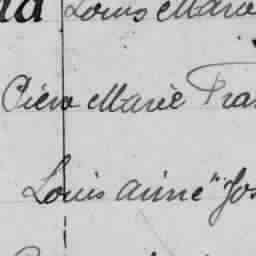 Louis Marie
Pierre Marie Fra
Louis Aimé "Jos